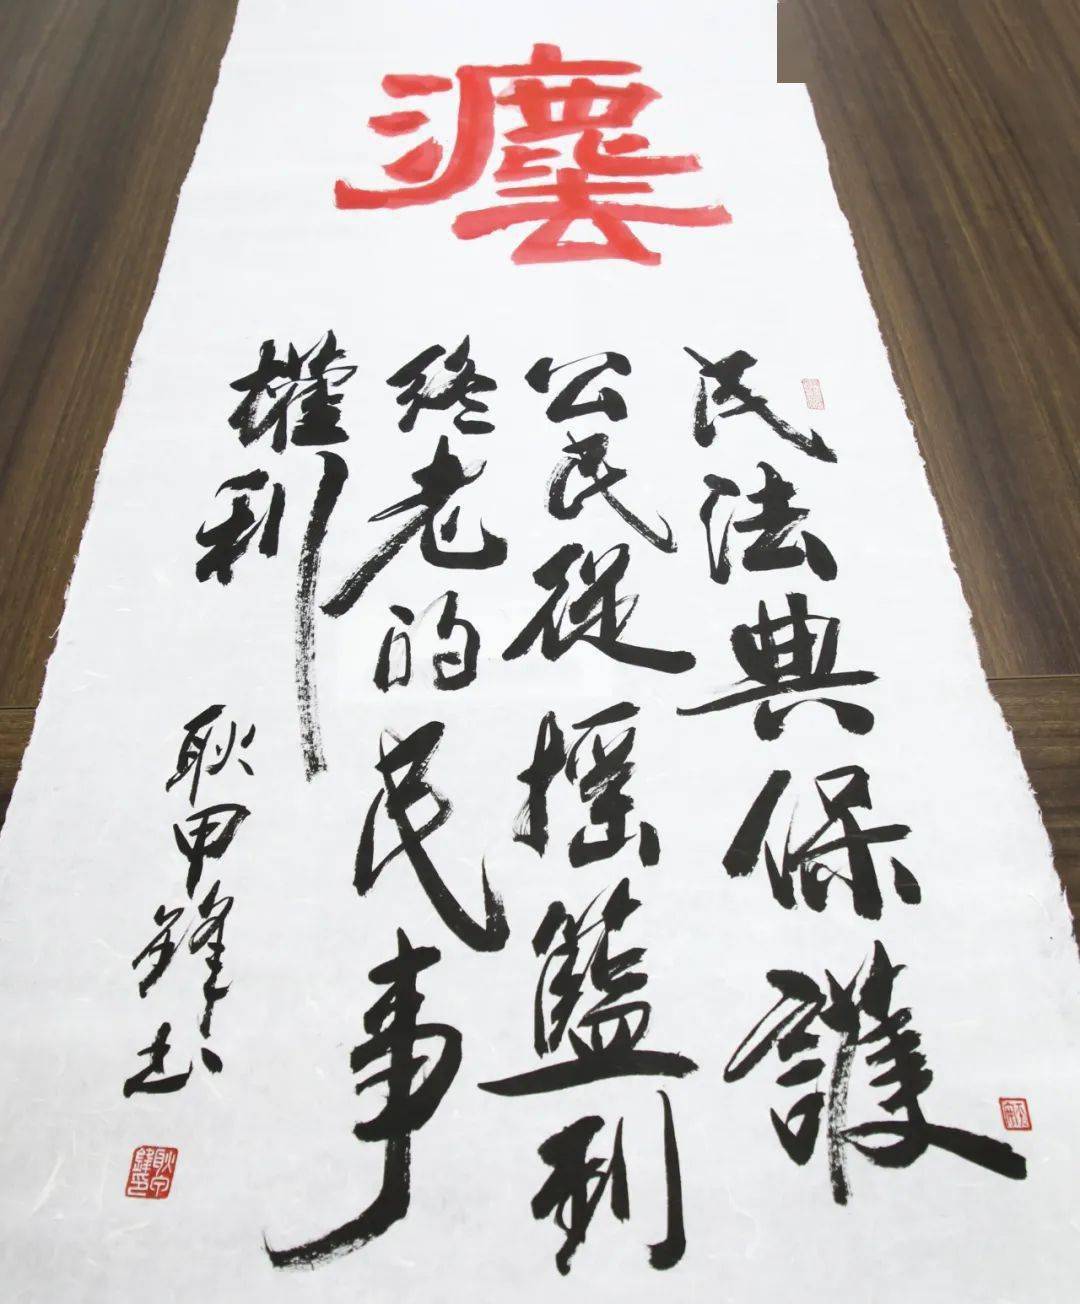 灋
民法典保護
公民從摇籃到
終老的民事
權利
耿甲鋒书